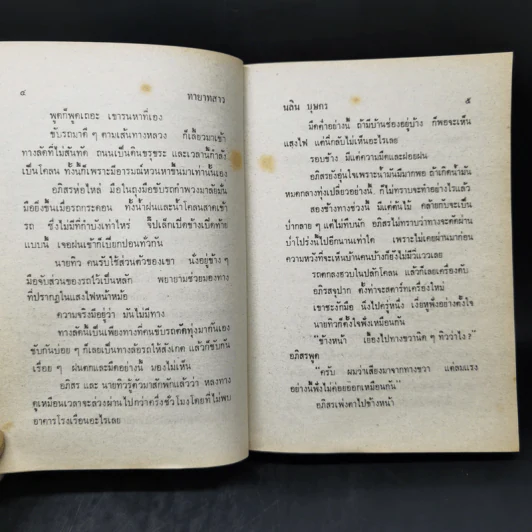 ๔
ทายาทสาว
พูดก็พูดเถอะ เขารนหาที่เอง
ขับรถมาดี ๆ ตามเส้นทางหลวง ก็เลี้ยวมาเข้า
ทางลัดที่ไม่สันทัด ถนนเป็นดินขรุขระ และเวลานี้กำลัง
เป็นโคลน ทั้งนี้ก็เพราะมีอารมณ์หวนหาขึ้นมาเท่านั้นเอง
อภิสรห่อไหล่ มือในถุงมือขับรถกำพวงมาลัยมั่น
มือยิ่งขึ้นเมื่อรถกระดอน ทั้งน้ำฝนและน้ำโคลนสาดเข้า
รถ ซึ่งไม่มีที่กำบังเท่าไหร่ จี๊ปเล็กเปิดข้างเปิดท้าย
แบบนี้ เจอฝนเข้าก็เปียกปอนทั่วกัน
นายทิว คนรับใช้ส่วนตัวของเขา นั่งอยู่ข้าง ๆ
มือจับส่วนของรถไว้เป็นหลัก พยายามช่วยมองทาง
ที่ปรากฏในแสงไฟหน้าหม้อ
ความจริงมีอยู่ว่า มันไม่มีทาง
ทางลัดนี้เป็นเพียงทางที่คนขับรถตัดทุ่งมากันเอง
ขับกันบ่อย ๆ ก็เลยเป็นทางล้อรถให้สังเกต แล้วก็ขับกัน
เรื่อย ๆ ฝนตกและมืดอย่างนี้ มองไม่เห็น
อภิสร และ นายทิวรู้ตัวมาสักพักแล้วว่า หลงทาง
ดูเหมือนเวลาจะล่วงผ่านไปกว่าครึ่งชั่วโมงโดยที่ไม่พบ
อาคารโรงเรือนอะไรเลย
นลิน บุษกร
๕
มืดค่ำอย่างนี้ ถ้ามีบ้านช่องอยู่บ้าง ก็พอจะเห็น
แสงไฟ แต่นี่กลับไม่เห็นอะไรเลย
รอบข้าง มีแต่ความมืดและฝอยฝน
อภิสรยังอุ่นใจเพราะน้ำมันมีมากพอ ถ้าเกิดน้ำมัน
หมดกลางทุ่งเปลี่ยวอย่างนี้ ก็ไม่ทราบจะทำอย่างไรแล้ว
สองข้างทางช่วงนี้ มีแต่ต้นไม้ คล้ายกับจะเป็น
ป่ากลาย ๆ แต่ไม่ทึบนัก อภิสรไม่ทราบว่าทางจะตัดผ่าน
ป่าโปร่งนี้ไปอีกนานเท่าใด เพราะไม่เคยผ่านมาก่อน
ความหวังที่จะเห็นบ้านคนบ้างก็ยังไม่มีวี่แววเลย
รถตกลงฮวบในปลักโคลน แล้วก็เลยเครื่องดับ
อภิสรจุปาก ตั้งท่าจะสตาร์ทเครื่องใหม่
เขาชะงักมือ นิ่งไปครู่หนึ่ง เงี่ยหูฟังอย่างตั้งใจ
นายทิวก็ตั้งใจฟังเหมือนกัน
“ข้างหน้า เยื้องไปทางขวานิด ๆ ทิวว่าไง?”
อภิสรพูด
“ครับ ผมว่าเสียงมาจากทางขวา แต่ลมแรง
อย่างนี้ฟังไม่ค่อยออกเหมือนกัน”
อภิสรเพ่งตาไปข้างหน้า